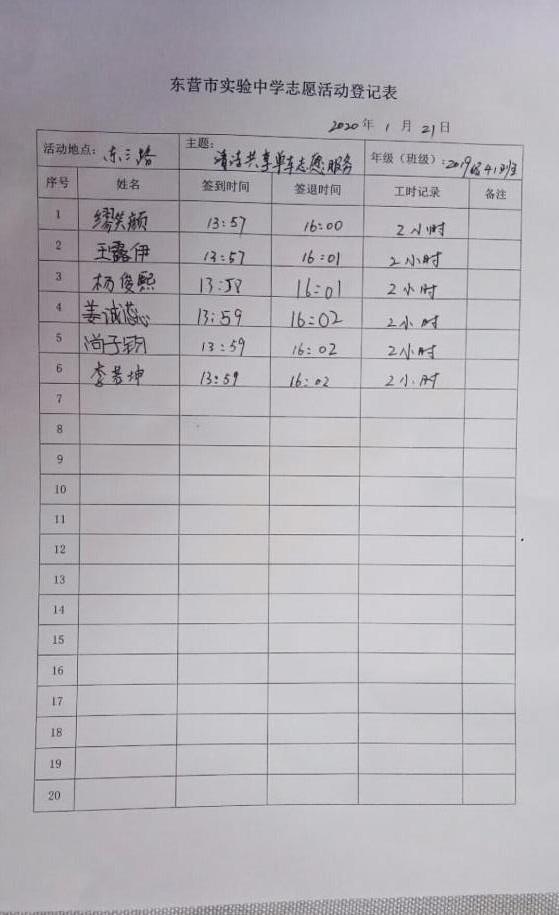 东营市实验中学志愿活动登记表
2020年 1 月 21日
活动地点: 东三路 主题: 清洁共享单车志愿服务 年级(班级): 2019级41班
序号 姓名 签到时间 签退时间 工时记录 备注
1 缪笑颜 13:57 16:00 2小时
2 王露伊 13:57 16:01 2小时
3 杨俊熙 13:58 16:01 2小时
4 姜诚蕊 13:59 16:02 2小时
5 尚子钧 13:59 16:02 2小时
6 李芳坤 13:59 16:02 2小时
7
8
9
10
11
12
13
14
15
16
17
18
19
20